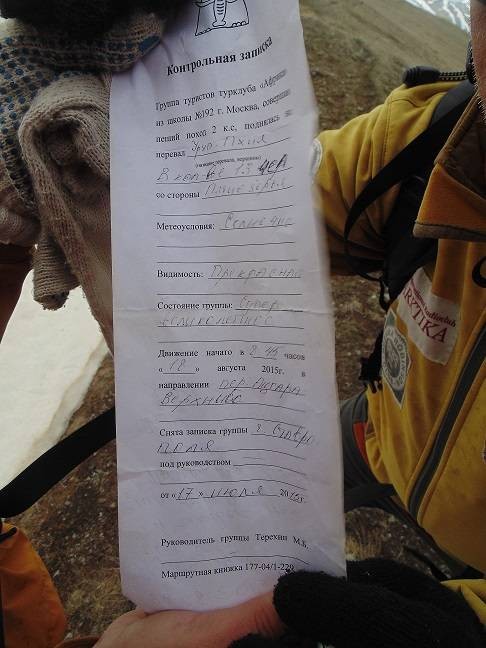 Контрольная записка
Группа туристов турклуба «Африка»
из школы №192 г. Москва, совершая
пеший поход 2 к.с, поднялась на
перевал Уруп-Пхия
(название перевала, вершины)
В кол-ве 13 чел
со стороны
Метеоусловия: Солнечно
Видимость: Прекрасная
Состояние группы: Супер
великолепное
Движение начато в 8 45 часов
«18» августа 2015г. в
направлении пер
Верхнего
Снята записка группы г.
под руководством
от «17» июля 2015г.
Руководитель группы Терехин М.Б.
Маршрутная книжка 177-04/1-220
ARKTIKA